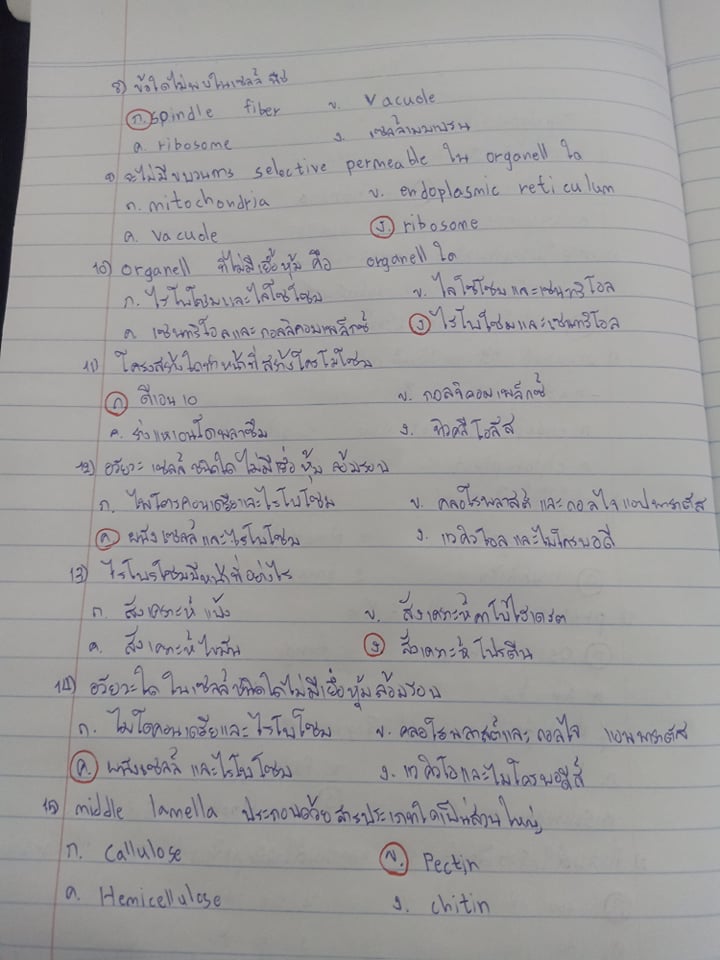 8) ข้อใดไม่พบในเซลล์ พืช
ก. spindle fiber ข. Vacuole
ค. ribosome ง. เซลล์เมมเบรน
9) จะไม่มีขบวนการ selective permeable ใน organell ใด
ก. mitochondria ข. endoplasmic reticulum
ค. vacuole ง. ribosome
10) organell ที่ไม่มีเยื่อหุ้ม คือ organell ใด
ก. ไรโบโซมและไลโซโซม ข. ไลโซโซมและเซนทริโอล
ค. เซนทริโอลและกอลจิคอมเพล็กซ์ ง. ไรโบโซมและเซนทริโอล
11) โครงสร้างใดทำหน้าที่สร้างไครโมโซม
ก. ดีเอนเอ ข. กอลจิคอมเพล็กซ์
ค. ร่างแหเอนโดพลาซึม ง. นิวคลีโอลัส
12) อวัยวะ เซลล์ ชนิดใด ไม่มีเยื่อ หุ้ม ล้อมรอบ
ก. ไมโตรคอนเดรียและไรโบโซม ข. คลอโรพลาสต์ และกอลไจแอปพาราตัส
ค. ผนังเซลล์และไรโบโซม ง. แวคิวโอลและไมโครบอดี
13) ไรโบรโซมมีหน้าที่อย่างไร
ก. สังเคราะห์ แป้ง ข. สังเคราะห์คาโบไฮเดรต
ค. สังเคราะห์ไขมัน ง. สังเคราะห์ โปรตีน
14) อวัยวะใด ในเซลล์ชนิดใดไม่มีเยื่อหุ้มล้อมรอบ
ก. ไมโตคอนเดรียและไรโบโซม ข. คลอโรพลาสต์และกอลไจ แอพพาราตัส
ค. ผนังเซลล์ และไรโบโซม ง. แวคิวโอและไมโครบอดีส์
15) middle lamella ประกอบด้วยสารประเภทใดเป็นส่วนใหญ่
ก. Callulose ข. Pectin
ค. Hemicellulose ง. chitin